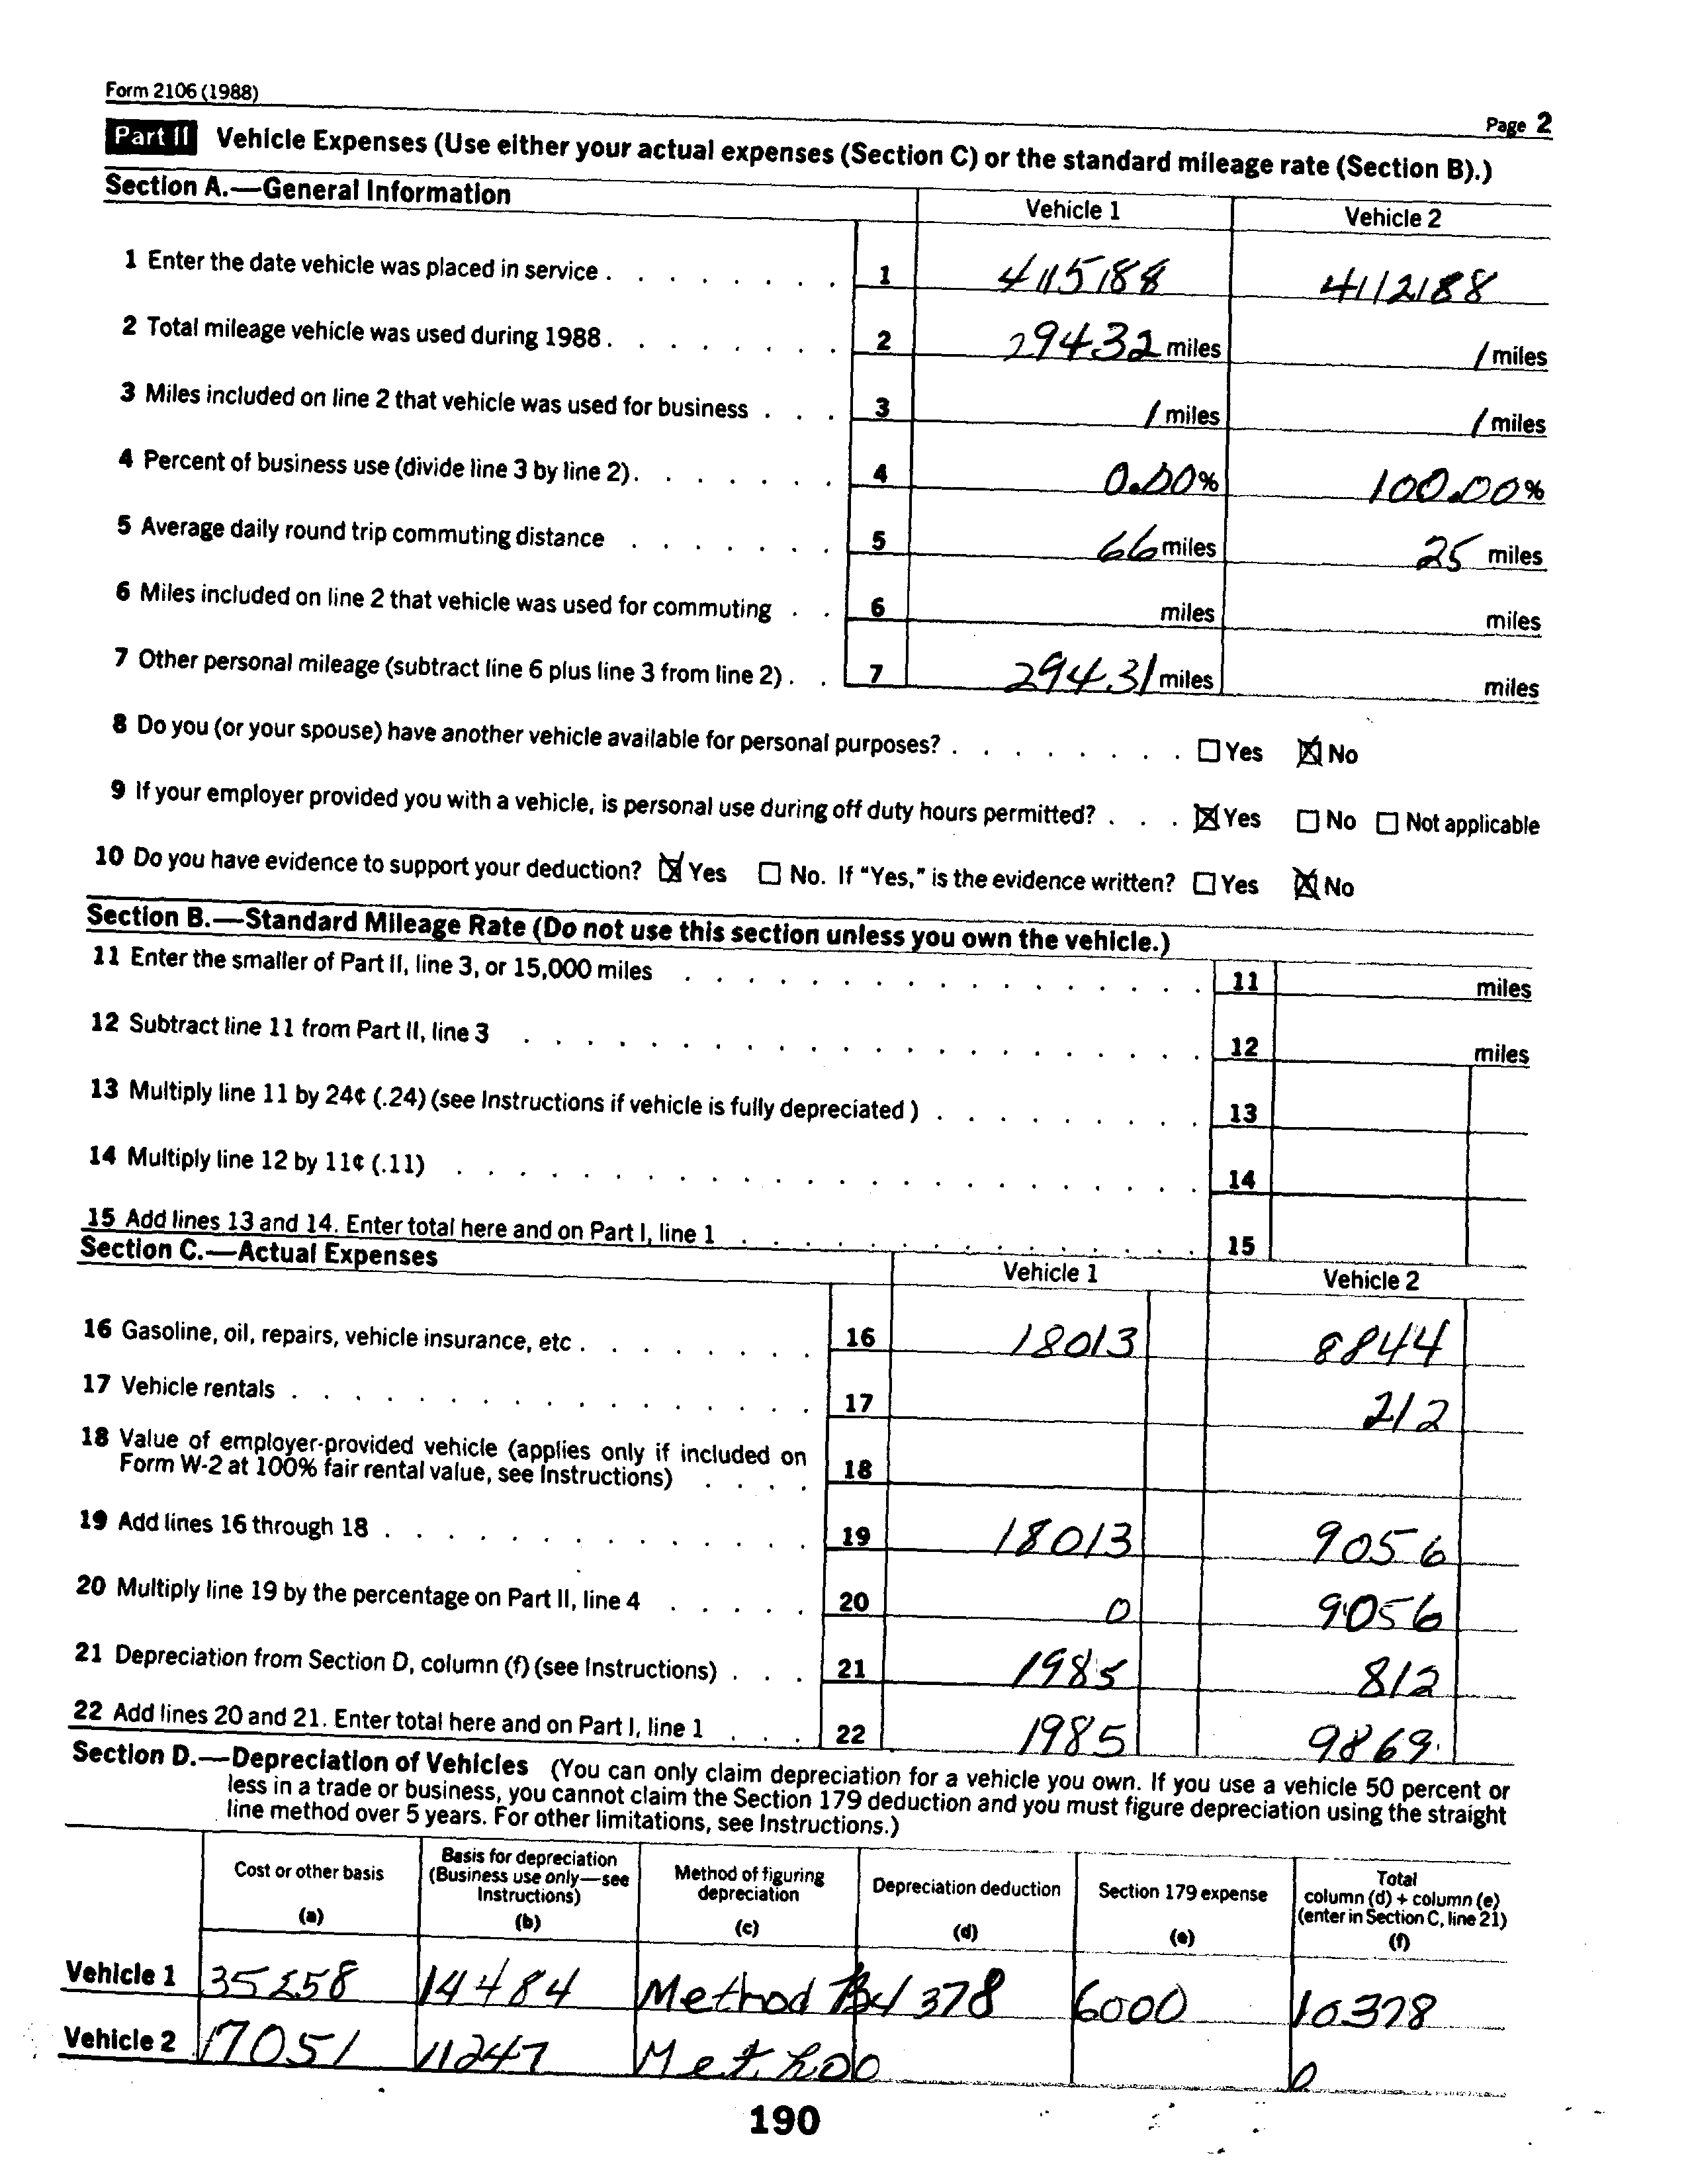 Form 2106 (1988)
Page 2
Part II Vehicle Expenses (Use either your actual expenses (Section C) or the standard mileage rate (Section B).)
Section A.—General Information
Vehicle 1 Vehicle 2
1 Enter the date vehicle was placed in service . . . . . . . . 1 4/15/88 4/12/88
2 Total mileage vehicle was used during 1988 . . . . . . . . 2 29432 miles 1 miles
3 Miles included on line 2 that vehicle was used for business . . . 3 1 miles 1 miles
4 Percent of business use (divide line 3 by line 2) . . . . . . . 4 0.00% 100.00%
5 Average daily round trip commuting distance . . . . . . . 5 66 miles 25 miles
6 Miles included on line 2 that vehicle was used for commuting . . 6 miles miles
7 Other personal mileage (subtract line 6 plus line 3 from line 2) . . 7 29431 miles miles
8 Do you (or your spouse) have another vehicle available for personal purposes? . . . . . . . . ☐ Yes ☒ No
9 If your employer provided you with a vehicle, is personal use during off duty hours permitted? . . . ☒ Yes ☐ No ☐ Not applicable
10 Do you have evidence to support your deduction? ☒ Yes ☐ No. If "Yes," is the evidence written? ☐ Yes ☒ No
Section B.—Standard Mileage Rate (Do not use this section unless you own the vehicle.)
11 Enter the smaller of Part II, line 3, or 15,000 miles . . . . . . . . . . . . . . . . . 11 miles
12 Subtract line 11 from Part II, line 3 . . . . . . . . . . . . . . . . . . . . . . 12 miles
13 Multiply line 11 by 24¢ (.24) (see Instructions if vehicle is fully depreciated ) . . . . . . . . . 13
14 Multiply line 12 by 11¢ (.11) . . . . . . . . . . . . . . . . . . . . . . . . 14
15 Add lines 13 and 14. Enter total here and on Part I, line 1 . . . . . . . . . . . . . . . 15
Section C.—Actual Expenses
Vehicle 1 Vehicle 2
16 Gasoline, oil, repairs, vehicle insurance, etc . . . . . . . . 16 18013 8844
17 Vehicle rentals . . . . . . . . . . . . . . . . . 17 212
18 Value of employer-provided vehicle (applies only if included on
Form W-2 at 100% fair rental value, see Instructions) . . . . 18
19 Add lines 16 through 18 . . . . . . . . . . . . . . 19 18013 9056
20 Multiply line 19 by the percentage on Part II, line 4 . . . . . 20 0 9056
21 Depreciation from Section D, column (f) (see Instructions) . . . 21 1985 812
22 Add lines 20 and 21. Enter total here and on Part I, line 1 . . . 22 1985 9869
Section D.—Depreciation of Vehicles (You can only claim depreciation for a vehicle you own. If you use a vehicle 50 percent or
less in a trade or business, you cannot claim the Section 179 deduction and you must figure depreciation using the straight
line method over 5 years. For other limitations, see Instructions.)
Cost or other basis (a)
Basis for depreciation (Business use only—see Instructions) (b)
Method of figuring depreciation (c)
Depreciation deduction (d)
Section 179 expense (e)
Total column (d) + column (e) (enter in Section C, line 21) (f)
Vehicle 1 35258 14484 Method B 4378 6000 10378
Vehicle 2 17051 11247 Method 0
190